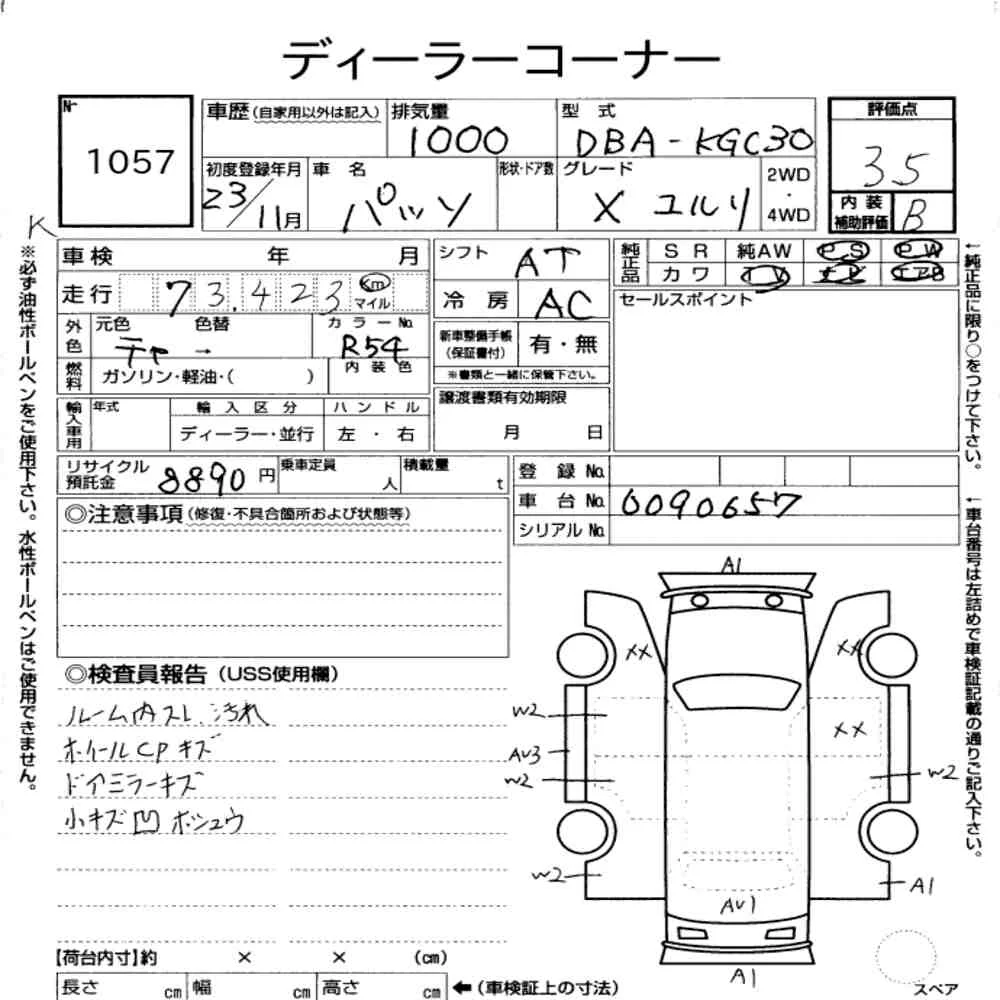 ディーラーコーナー
№ 1057
車歴(自家用以外は記入)
排気量 1000
型式 DBA-KGC30
評価点 3.5
初度登録年月 23/11月
車名 パッソ
形状・ドア数
グレード X ユルリ
2WD ・ 4WD
内装補助評価 B
K
車検 年 月
走行 73,423 Km マイル
シフト AT
冷房 AC
純正品 SR 純AW PS PW
カワ TV ナビ エアB
セールスポイント
外色 元色 チャ → 色替
カラーNo. R54
内装色
燃料 ガソリン・軽油・( )
新車整備手帳(保証書付) 有・無
※書類と一緒に保管下さい。
譲渡書類有効期限 月 日
輸入車用 年式
輸入区分 ディーラー・並行
ハンドル 左・右
リサイクル預託金 8890円
乗車定員 人
積載量 t
登録No.
車台No. 0090657
シリアルNo.
◎注意事項(修復・不具合箇所および状態等)
◎検査員報告(USS使用欄)
ルーム内スレ、汚れ
ホイールCPキズ
ドアミラーキズ
小キズ凹 ホシュウ
A1
XX
XX
W2
XX
AU3
W2
W2
W2
A1
AU1
A1
【荷台内寸】約 × × (cm)
長さ cm 幅 cm 高さ cm ←(車検証上の寸法)
スペア
※必ず油性ボールペンをご使用下さい。水性ボールペンはご使用できません。
←純正品に限り○をつけて下さい。
←車台番号は左詰めで車検証記載の通りご記入下さい。